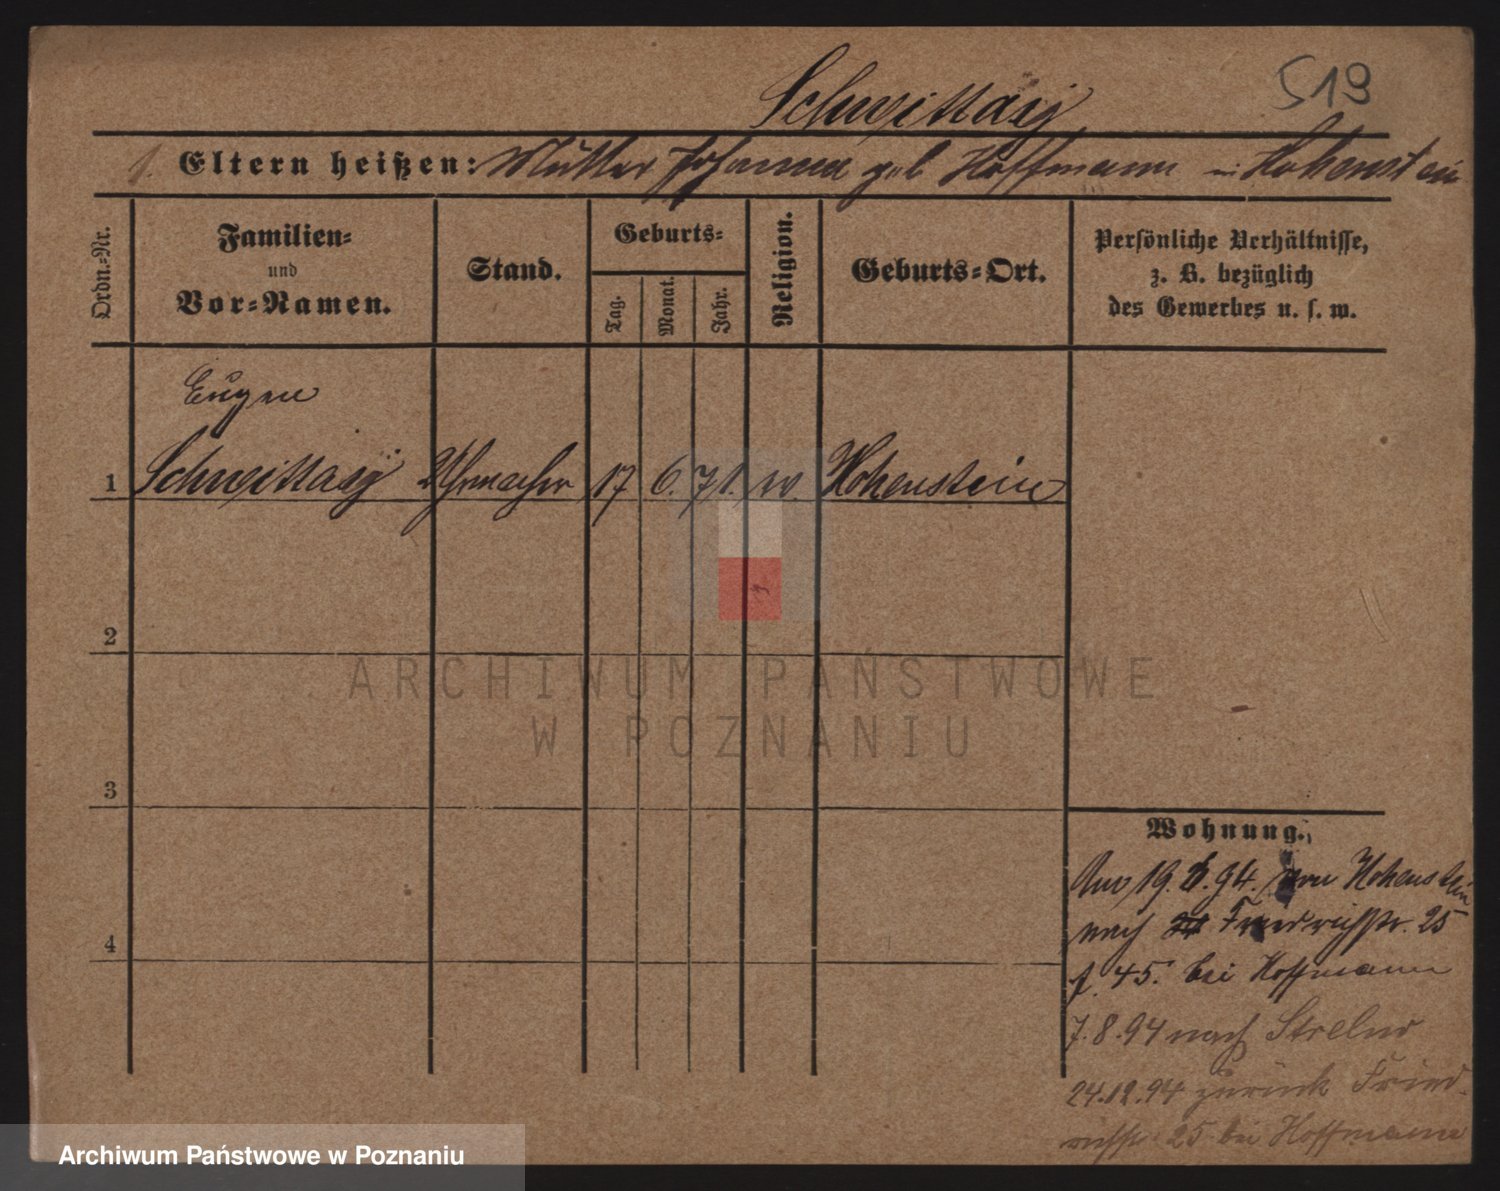 Schweittaij
519
1. Eltern heißen: Mutter Johanna geb Hoffmann in Hohenstein
Ordn.=Nr.
Familien=
und
Vor=Namen.
Stand.
Geburts=
Tag.
Monat.
Jahr.
Religion.
Geburts=Ort.
Persönliche Verhältnisse,
z. B. bezüglich
des Gewerbes u. s. w.
Eugen
1 Uhrmacher 17 6. 71. Hohenstein
2
3
4
Wohnung.
19. 94. von Hohenstein
nach Friedrichstr. 25
f. 45. bei Hoffmann
7.8.94 nach Strelno
24.12.94 zurück Fried-
richstr 25 bei Hoffmann
ARCHIWUM PAŃSTWOWE
W POZNANIU
Archiwum Państwowe w Poznaniu